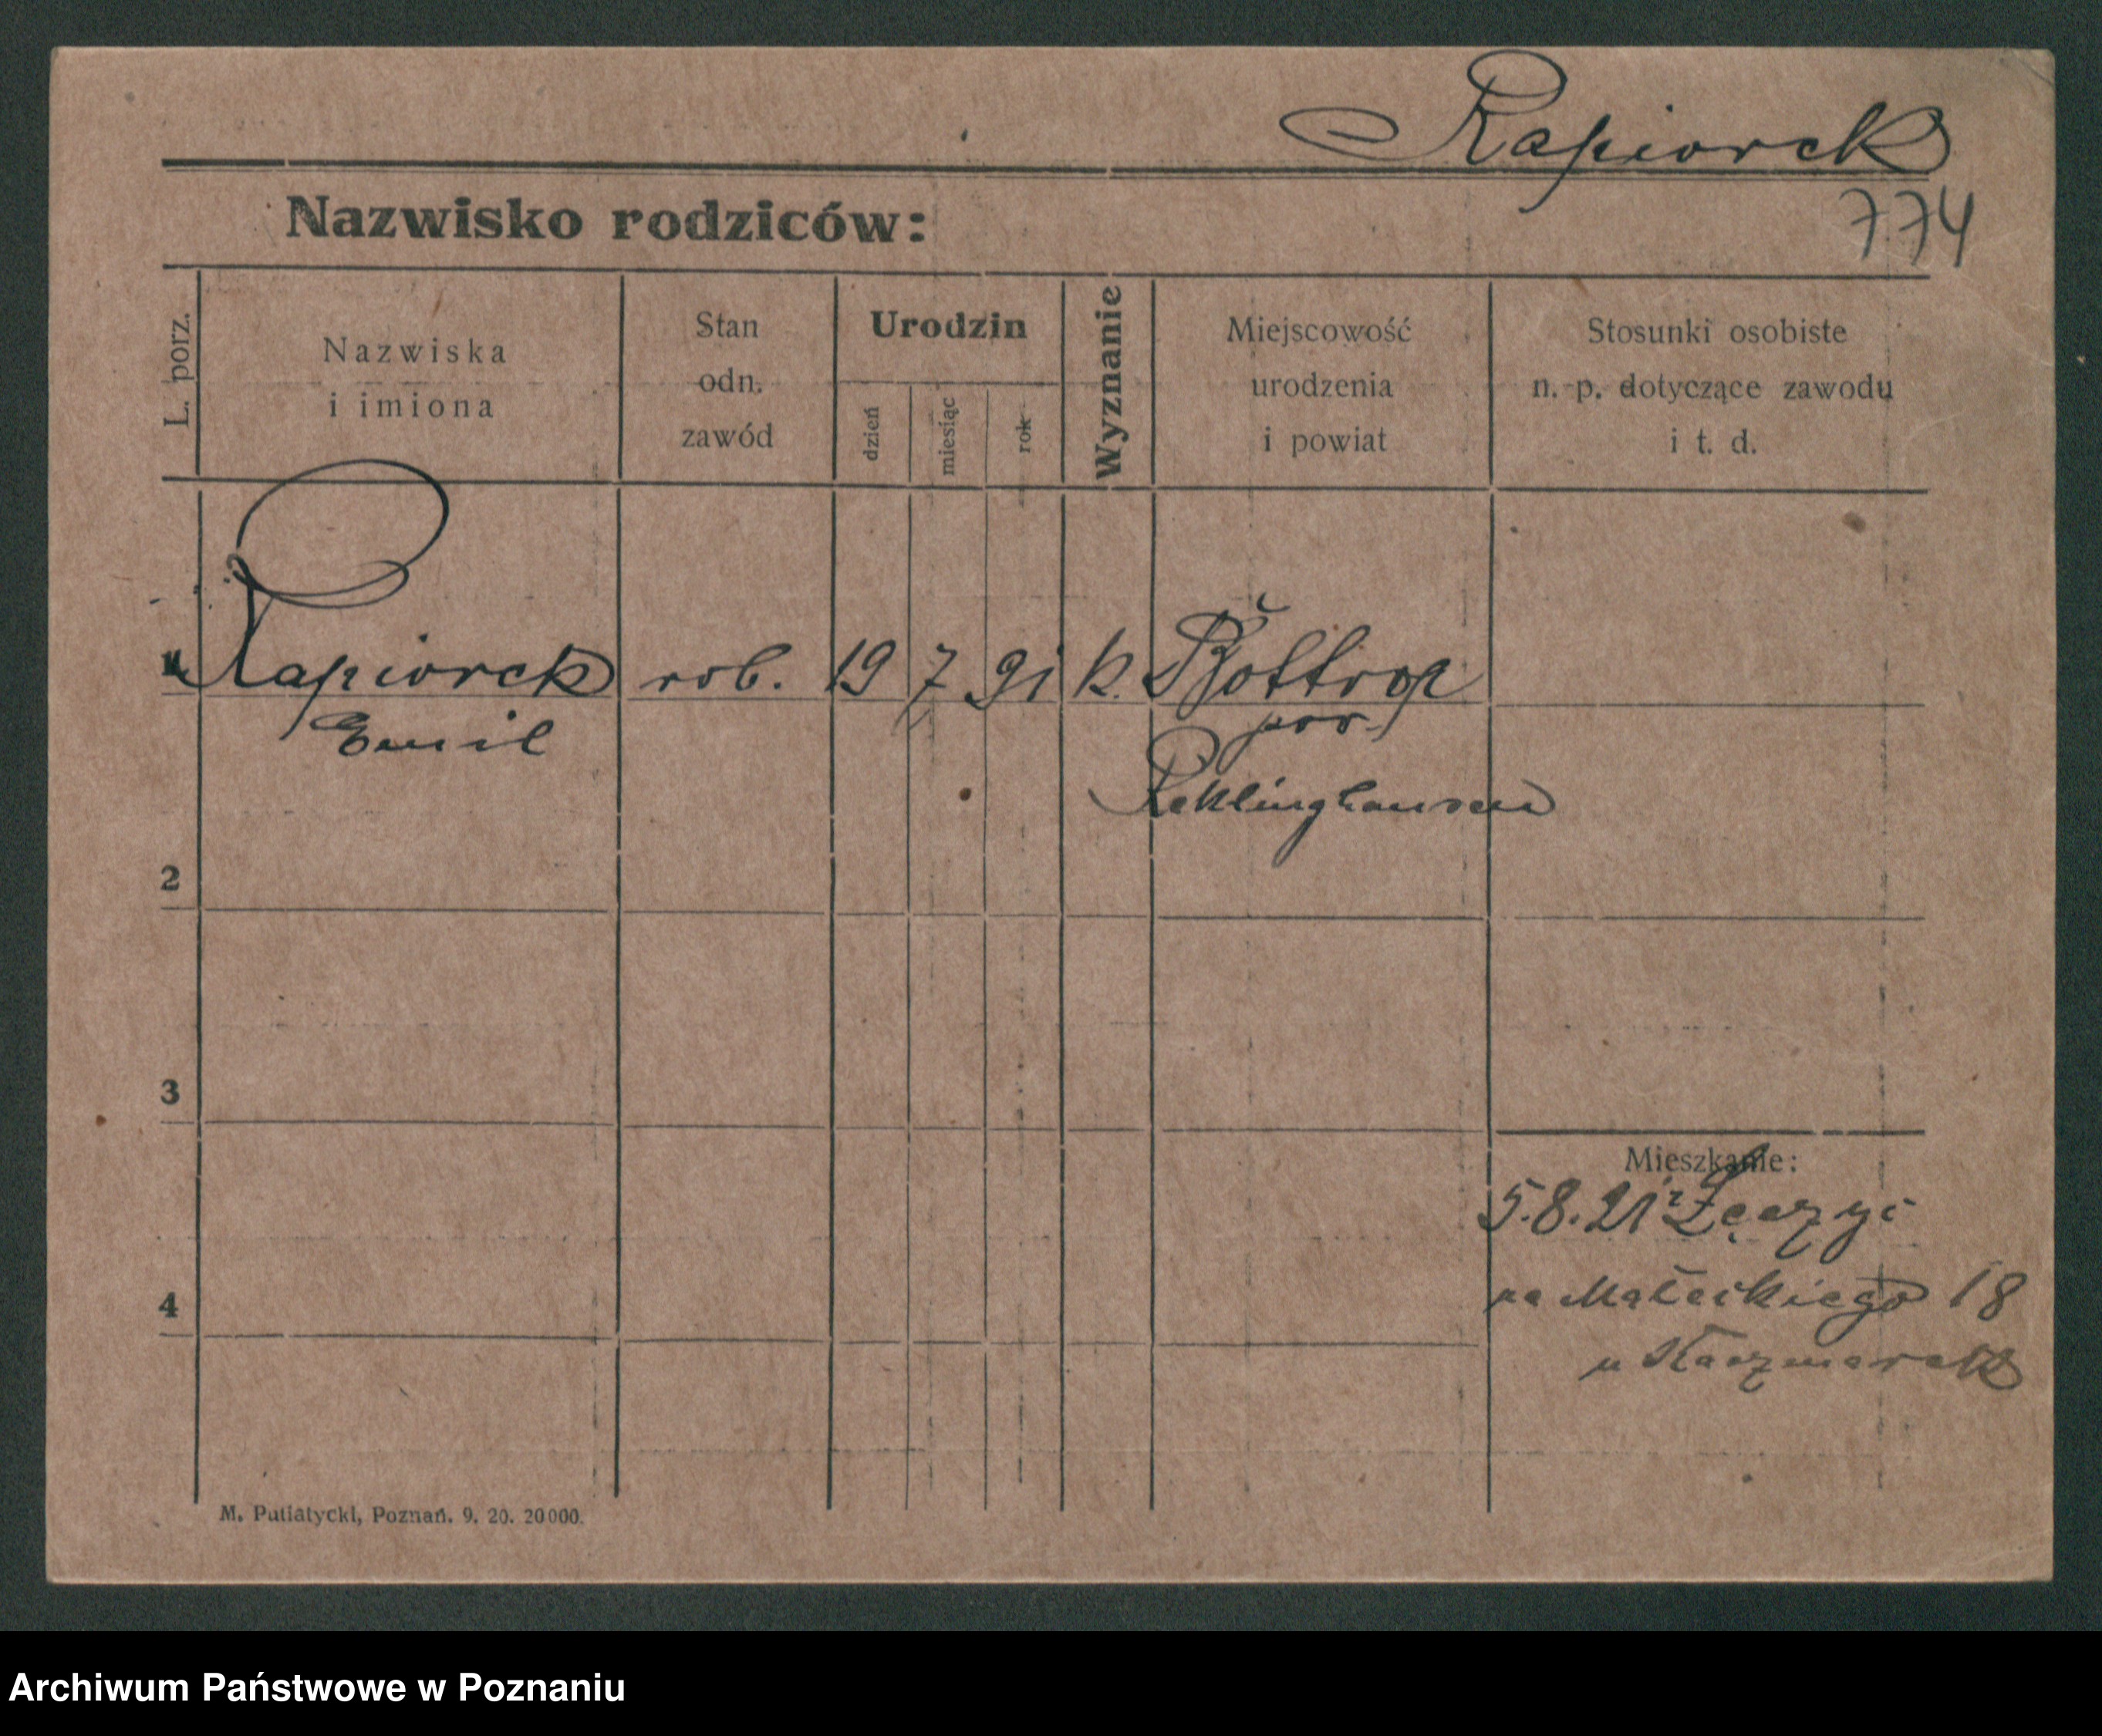 Rapiorek
774
Nazwisko rodziców:
L. porz.
Nazwiska
i imiona
Stan
odn.
zawód
Urodzin
dzień
miesiąc
rok
Wyznanie
Miejscowość
urodzenia
i powiat
Stosunki osobiste
n. p. dotyczące zawodu
i t. d.
1 Rapiorek rob. 19 7 91 k. Bottrop
Emil pow.
Reklinghausen
2
3
4
Mieszkanie:
5.8.21 z Łęczyc
na Małeckiego 18
u Kaczmarek
M. Putiatycki, Poznań. 9. 20. 20000.
Archiwum Państwowe w Poznaniu